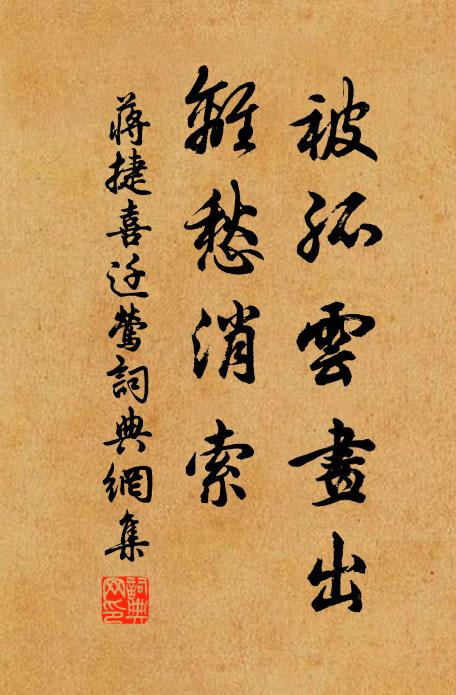 被孤雲畫出
離愁消索
蔣捷喜迁鶯詞典網集
詞典网印